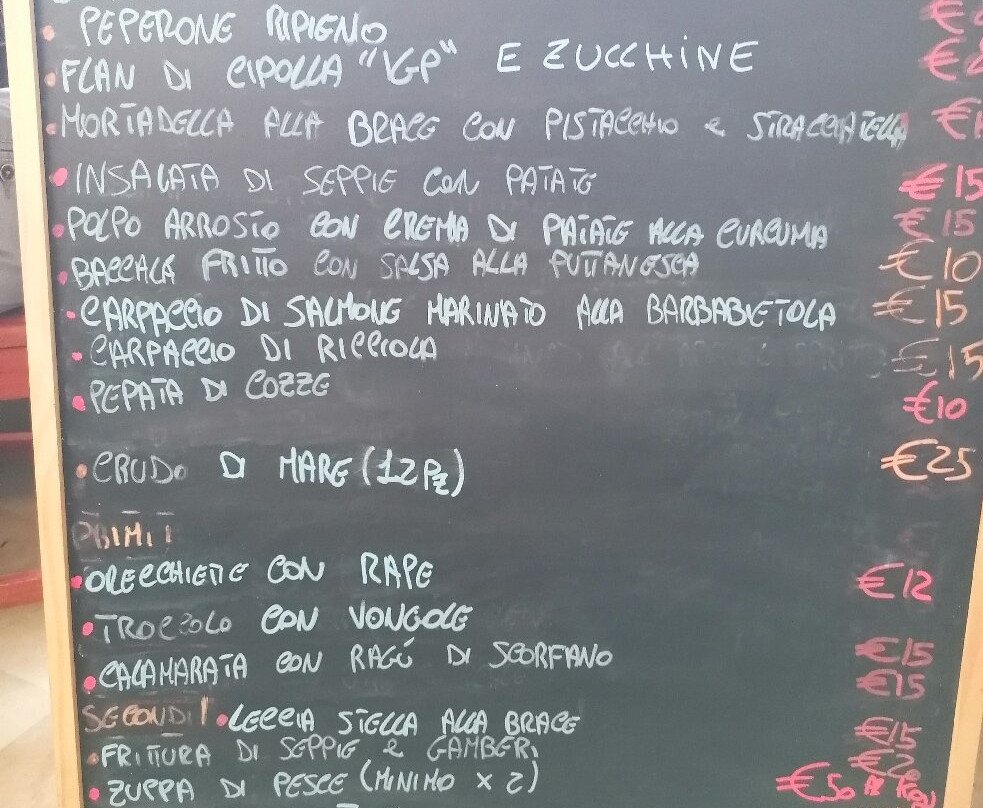 PEPERONE RIPIENO
FLAN DI CIPOLLA "IGP" E ZUCCHINE
MORTADELLA ALLA BRACE CON PISTACCHIO e STRACCIATELLA
INSALATA DI SEPPIE CON PATATE €15
POLPO ARROSTO CON CREMA DI PATATE ALLA CURCUMA €15
BACCALÁ FRITTO CON SALSA ALLA PUTTANESCA €10
CARPACCIO DI SALMONE MARINATO ALLA BARBABIETOLA €15
CARPACCIO DI RICCIOLA €15
PEPATA DI COZZE €10
CRUDO DI MARE (12 Pz) €25
PRIMI
ORECCHIETTE CON RAPE €12
TROCCOLO CON VONGOLE €15
CALAMARATA CON RAGÚ DI SCORFANO €15
SECONDI LECCIA STELLA ALLA BRACE €15
FRITTURA DI SEPPIE e GAMBERI
ZUPPA DI PESCE (MINIMO X 2) €50